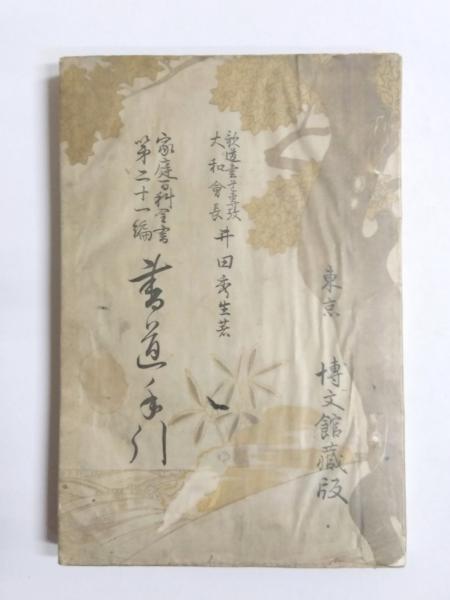 東京
博文館蔵版
歌道書道専攻
大和會長
井田秀生著
家庭百科全書
第二十一編
書道手引